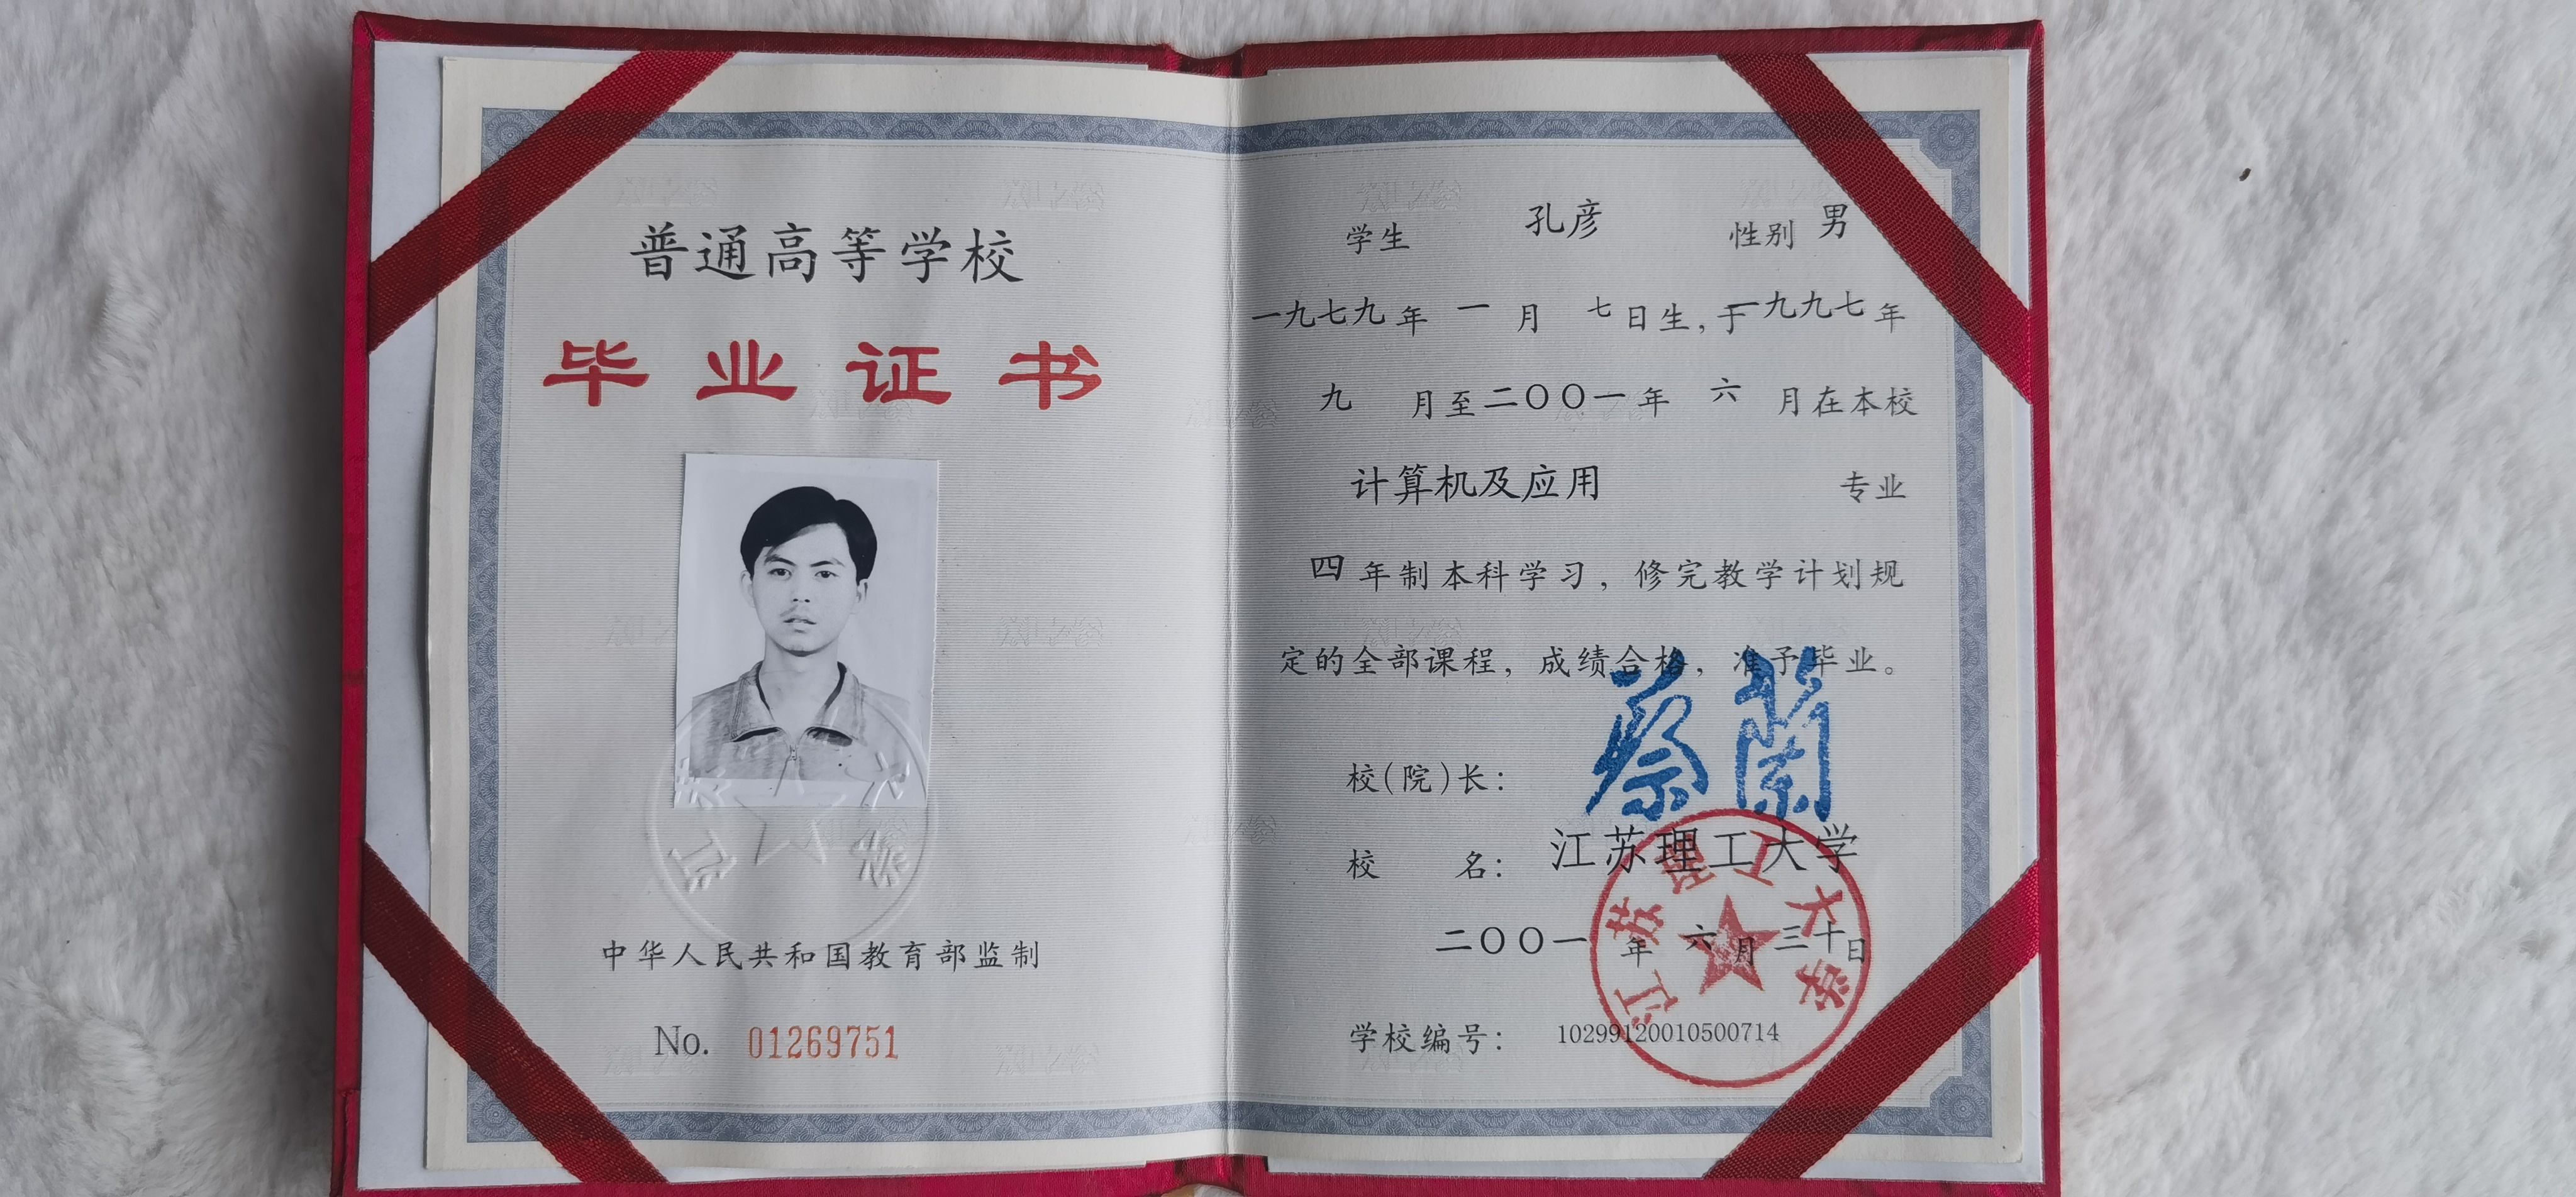 普通高等学校
毕业证书
中华人民共和国教育部监制
No. 01269751
学生 孔彦 性别 男
一九七九年 一 月 七日生,于一九九七年
九 月至二〇〇一年 六 月在本校
计算机及应用 专业
四年制本科学习,修完教学计划规
定的全部课程,成绩合格,准予毕业。
校(院)长: 蔡兰
校 名: 江苏理工大学
二〇〇一年六月三十日
学校编号: 10299120010500714
江苏理工大学